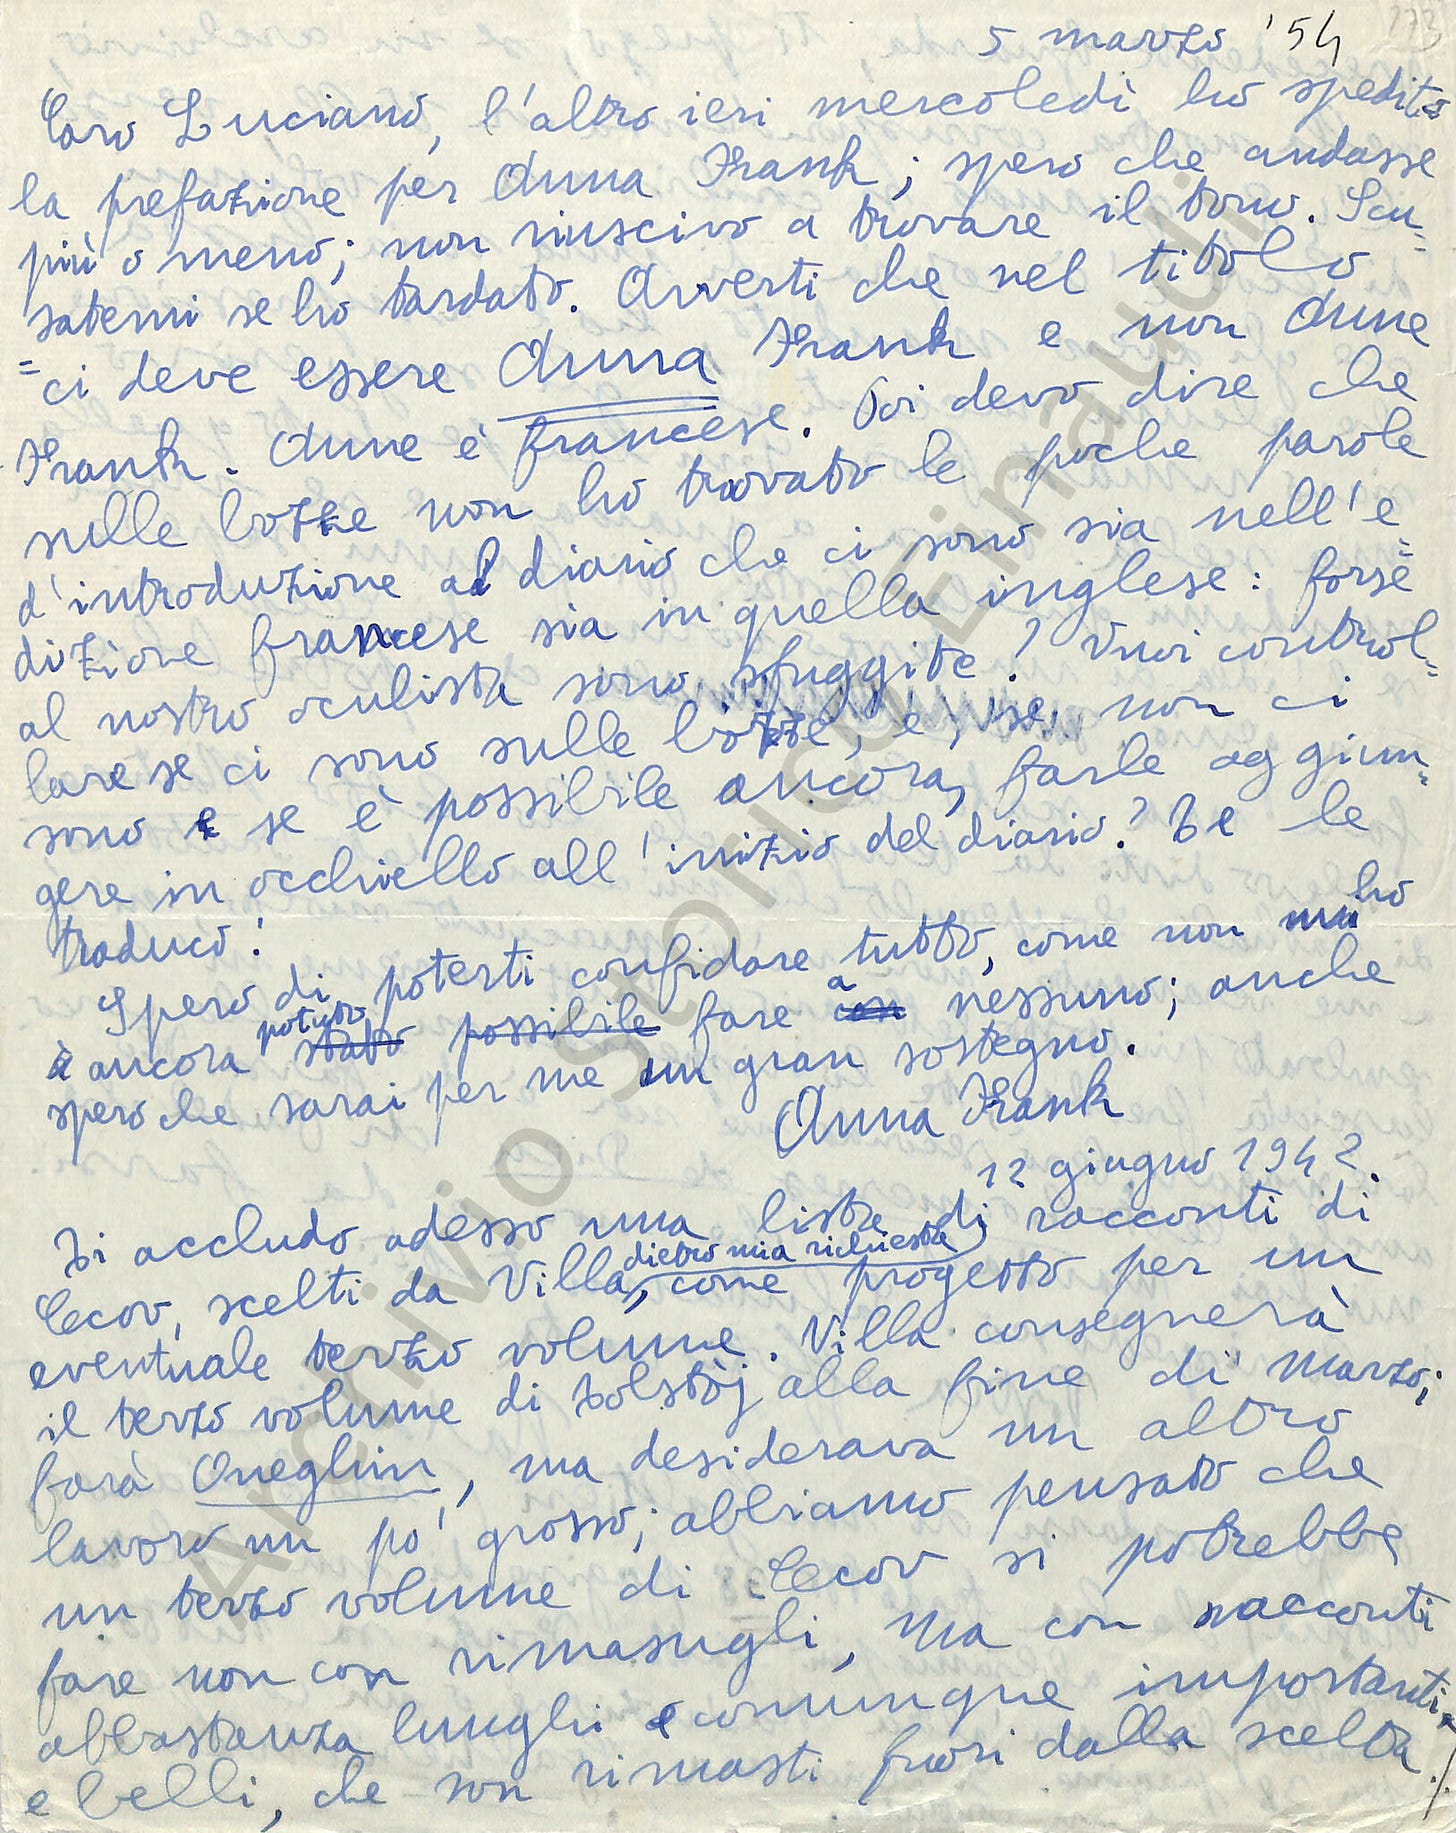 5 marzo '54
Caro Luciano, l'altro ieri mercoledì ho spedito
la prefazione per Anna Frank; spero che andasse
più o meno; non riuscivo a trovare il tono. Scu=
satemi se ho tardato. Avverti che nel titolo
=ci deve essere Anna Frank e non Anne
Frank. Anne è francese. Poi devo dire che
sulle bozze non ho trovato le poche parole
d'introduzione al diario che ci sono sia nell'e=
dizione francese sia in quella inglese: forse
al nostro oculista sono sfuggite? Vuoi control=
lare se ci sono sulle bozze, e, se non ci
sono e se è possibile ancora, farle aggiun=
gere in occhiello all'inizio del diario? Te le
traduco:
Spero di poterti confidare tutto, come non ho
ancora potuto stato possibile fare a con nessuno; anche
spero che sarai per me un gran sostegno.
Anna Frank
12 giugno 1942.
Ti accludo adesso una lista di racconti di
Cecov, scelti da Villa, dietro mia richiesta, come progetto per un
eventuale terzo volume. Villa consegnerà
il terzo volume di Tolstòj alla fine di marzo;
farà Oneghin, ma desiderava un altro
lavoro un po' grosso; abbiamo pensato che
un terzo volume di Cecov si potrebbe
fare non con rimasugli, ma con racconti
abbastanza lunghi e comunque importanti
e belli, che son rimasti fuori dalla scelta
./.
Archivio Storico Einaudi